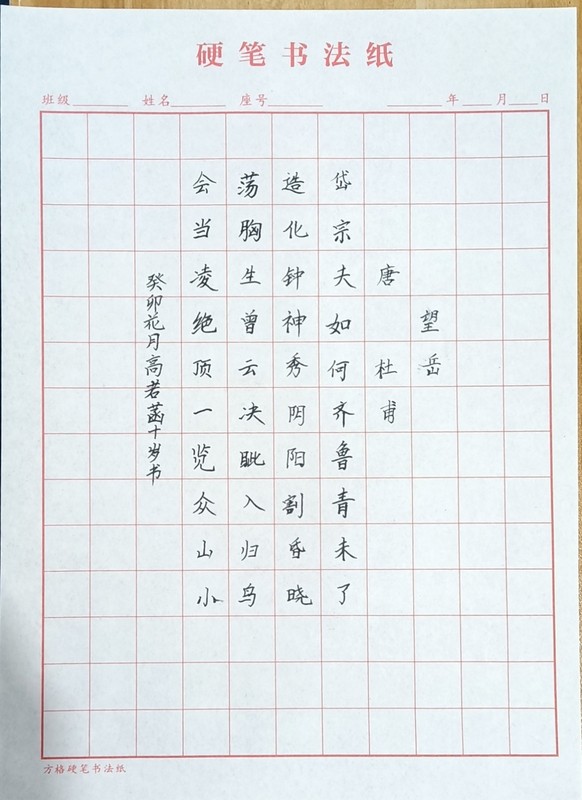 硬笔书法纸
班级 姓名 座号 年 月 日
望岳
唐 杜甫
岱宗夫如何齐鲁青未了
造化钟神秀阴阳割昏晓
荡胸生曾云决眦入归鸟
会当凌绝顶一览众山小
癸卯花月高若菡十岁书
方格硬笔书法纸